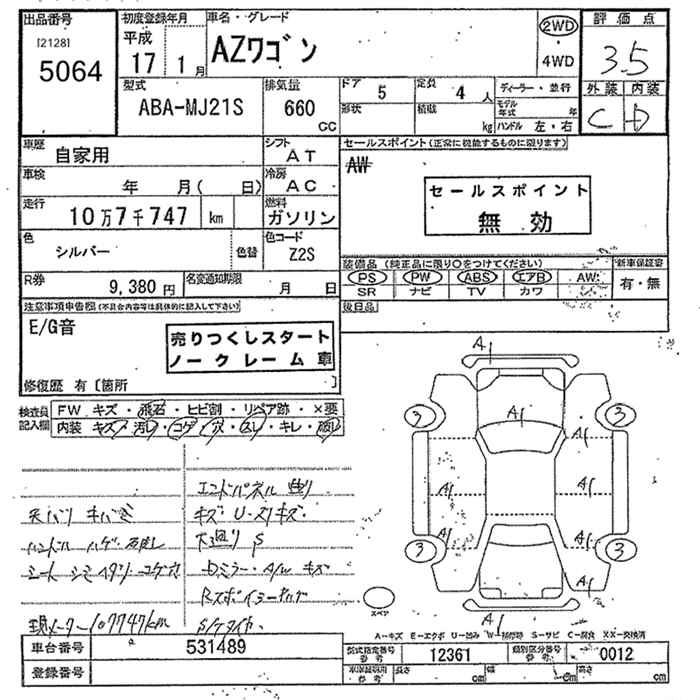 出品番号
[2128]
5064
初度登録年月
平成
17 1月
車名・グレード
AZワゴン
2WD
4WD
評価点
3.5
外装 内装
C D
型式
ABA-MJ21S
排気量
660
CC
ドア
5
形状
定員
4人
積載
kg
ディーラー・並行
モデル年式 年
ハンドル 左・右
車歴
自家用
シフト
AT
車検
年 月( 日)
冷房
AC
走行
10万7千747 km
燃料
ガソリン
色
シルバー
色替
色コード
Z2S
R券
9,380円
名変通知期限
月 日
セールスポイント(正常に機能するものに限ります)
AW
セールスポイント
無効
装備品(純正品に限り○をつけてください)
PS PW ABS エアB AW
SR ナビ TV カワ
新車保証書
有・無
後日品
注意事項申告欄(不具合内容等は具体的に記入して下さい)
E/G音
売りつくしスタート
ノークレーム車
修復歴 有〔箇所 〕
検査員記入欄
FW キズ・飛石・ヒビ割・リペア跡・×要
内装 キズ・汚レ・コゲ・穴・スレ・キレ・破レ
エンドパネル 曲り
天バリ キバミ
キズ U・スリキズ
ハンドル ハゲ
S
シート シミ
ミラー・A/W キズ
現メーター107747km
A1
A1
3 3
A1 A1
A1 A1
3 3
A1
A1
スペア
A-キズ E-エクボ U-凹み W-補修跡 S-サビ C-腐食 XX-交換済
車台番号
531489
登録番号
型式指定番号
参考
12361
類別区分番号
参考
0012
車庫証明用
参考
長さ cm
幅 cm
高さ cm